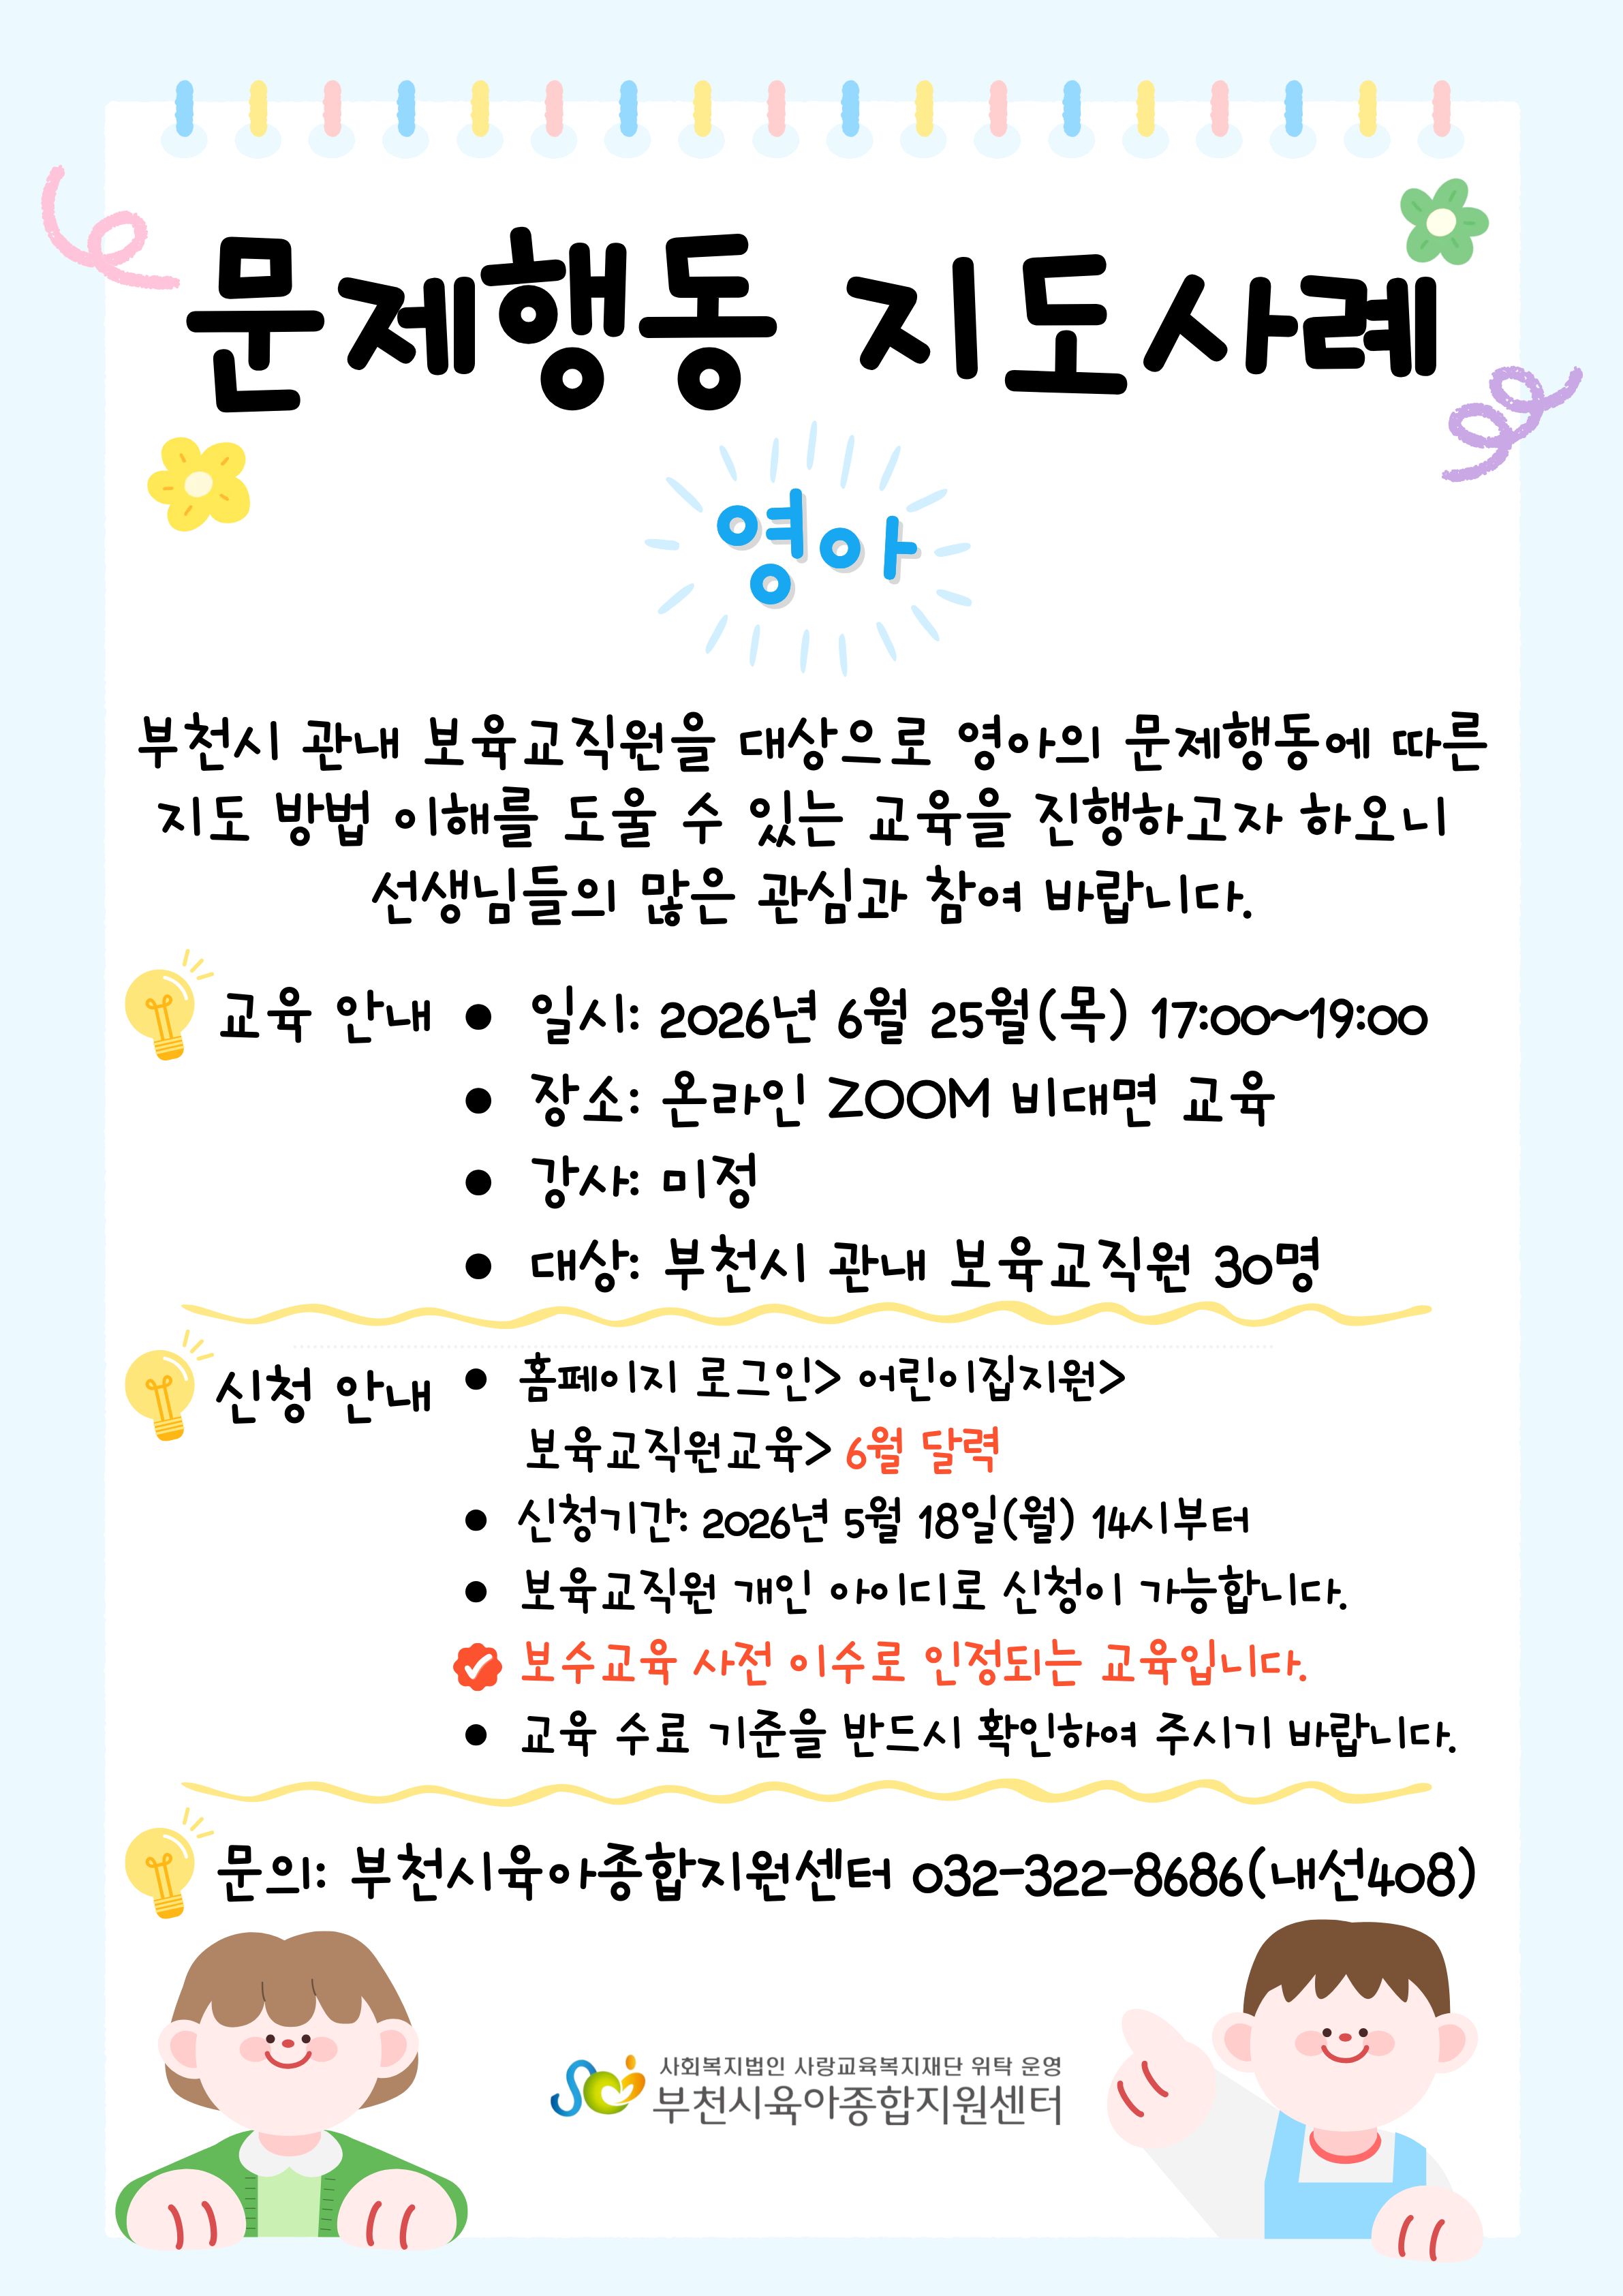 문제행동 지도사례
영아
부천시 관내 보육교직원을 대상으로 영아의 문제행동에 따른
지도 방법 이해를 도울 수 있는 교육을 진행하고자 하오니
선생님들의 많은 관심과 참여 바랍니다.
교육 안내
● 일시: 2026년 6월 25월(목) 17:00~19:00
● 장소: 온라인 ZOOM 비대면 교육
● 강사: 미정
● 대상: 부천시 관내 보육교직원 30명
신청 안내
● 홈페이지 로그인> 어린이집지원>
보육교직원교육> 6월 달력
● 신청기간: 2026년 5월 18일(월) 14시부터
● 보육교직원 개인 아이디로 신청이 가능합니다.
보수교육 사전 이수로 인정되는 교육입니다.
● 교육 수료 기준을 반드시 확인하여 주시기 바랍니다.
문의: 부천시육아종합지원센터 032-322-8686(내선408)
사회복지법인 사랑교육복지재단 위탁 운영
부천시육아종합지원센터